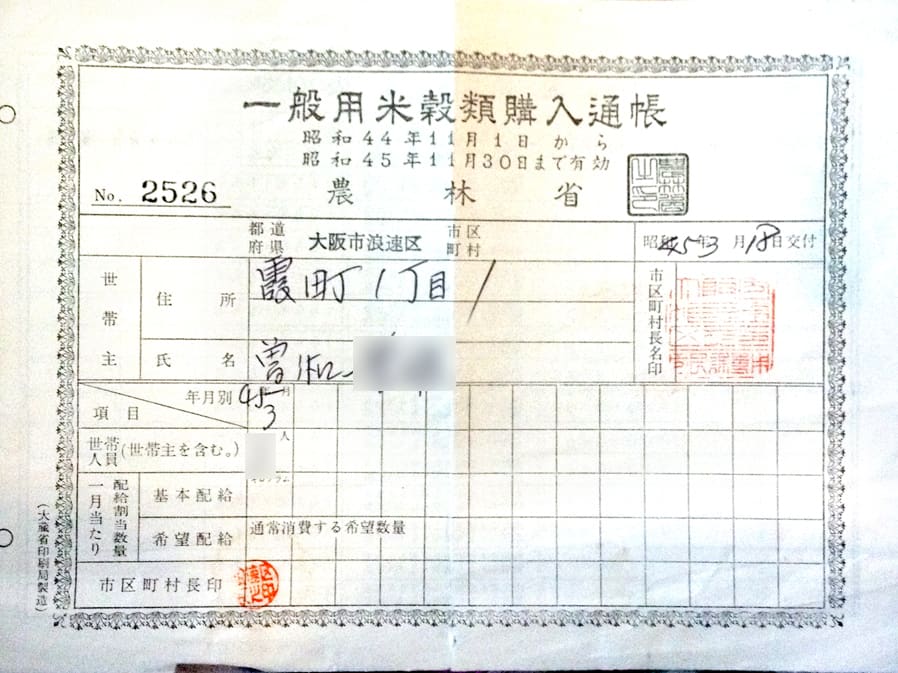 一般用米穀類購入通帳
昭和44年11月1日から
昭和45年11月30日まで有効
No. 2526
農林省
都道府県
大阪市浪速区
市区町村
昭和45年3月18日交付
世帯主
住所
霞町1丁目1
市区町村長名印
氏名
曽和
年月別
項目
45年3月
世帯人員(世帯主を含む。)
人
キログラム
配給割当数量一月当たり
基本配給
希望配給
通常消費する希望数量
市区町村長印
(大蔵省印刷局製造)